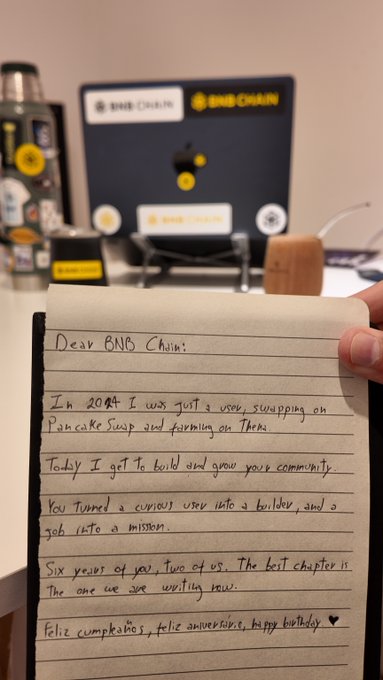 BNB CHAIN
BNB CHAIN
BNB CHAIN
BNB CHAIN
Dear BNB Chain:
In 2024 I was just a user, swapping on
PancakeSwap and farming on Thena.
Today I get to build and grow your community.
You turned a curious user into a builder, and a
job into a mission.
Six years of you, two of us. The best chapter is
the one we are writing now.
Feliz cumpleaños, feliz aniversário, happy birthday. ♥